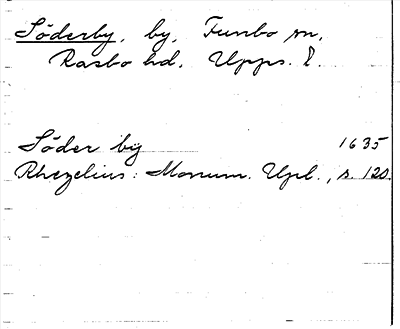 Söderby, by, Funbo sn,
Rasbo hd, Upps. l.
Söder bÿ 1635
Rhezelius: Monum. Upl., s. 120.